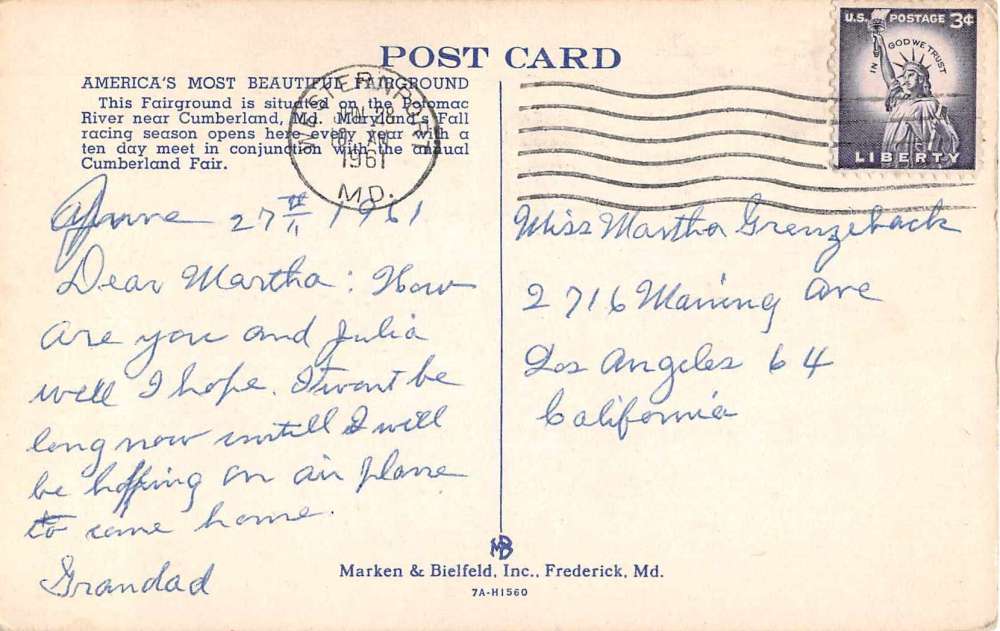 POST CARD
AMERICA'S MOST BEAUTIFUL FAIRGROUND
This Fairground is situated on the Potomac
River near Cumberland, Md. Maryland's Fall
racing season opens here every year with a
ten day meet in conjunction with the annual
Cumberland Fair.
WESTERNPORT
JUN 28
AM
1961
MD.
U.S. POSTAGE 3¢
IN GOD WE TRUST
LIBERTY
June 27th 1961
Dear Martha: How
are you and Julia
well I hope. It wont be
long now untill I will
be hopping on air plane
to come home.
Grandad
Miss Martha Grenzeback
2716 Maning Ave
Los Angeles 64
California
MB
Marken & Bielfeld, Inc., Frederick, Md.
7A-H1560